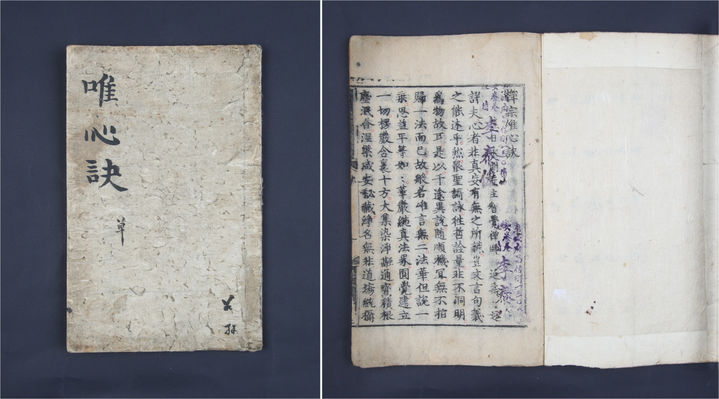 唯心訣
草
唯心訣
主智覺禪師 延壽 述
詳夫心者非真妄有無之所辨豈文言句義
之能述乎然衆聖謌詠徃哲詮量非不洞明
爲物故耳是以千途異說隨順機冝無不指
歸一法而已故般若唯言無二法華但說一
乘思益平等如如華嚴純真法界圓覺建立
一切楞嚴含裹十方大集染淨融通寶積根
塵泯合涅槃咸安秘藏淨名無非道場統攝